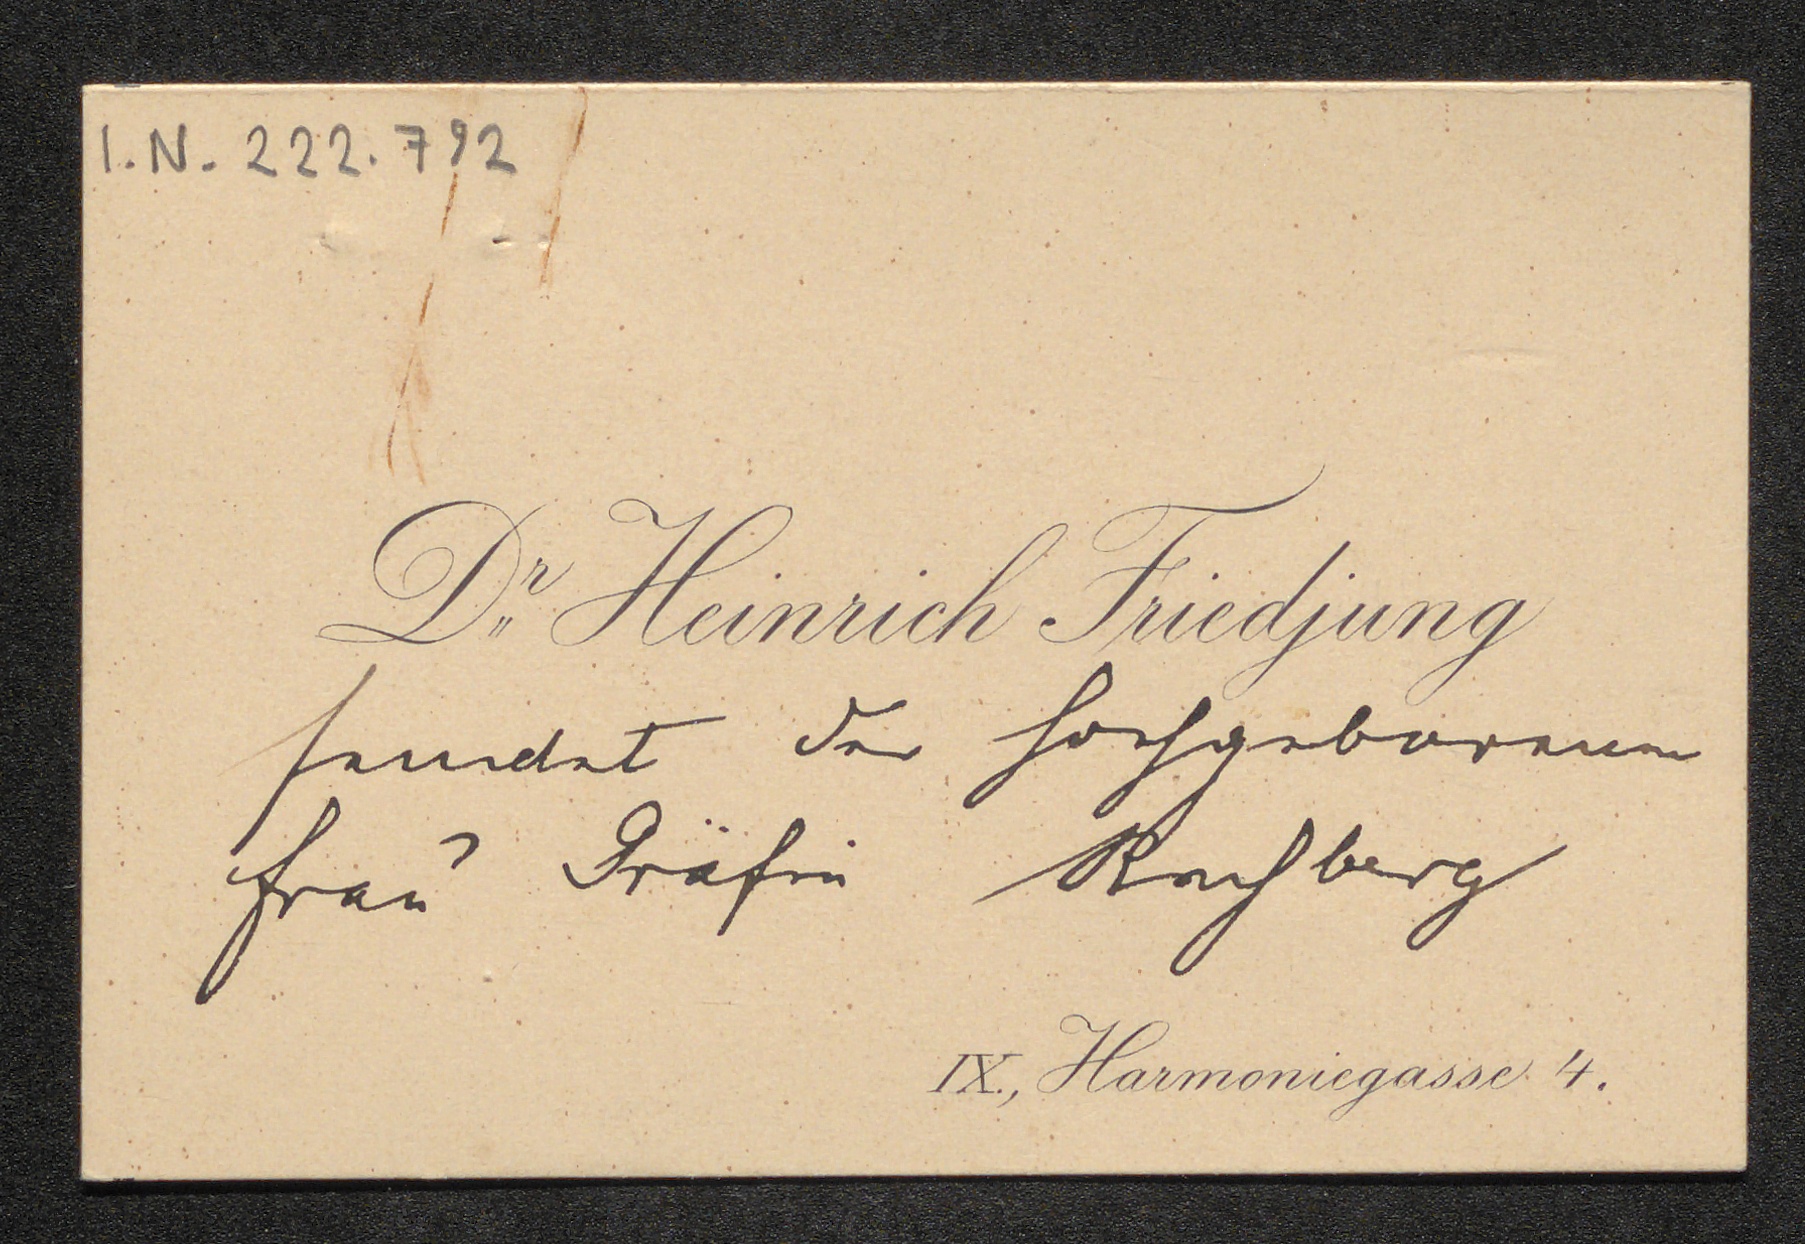 I.N. 222.792
Dr. Heinrich Friedjung
sendet der hochgeborenen
Frau Gräfin
IX., Harmoniegasse 4.